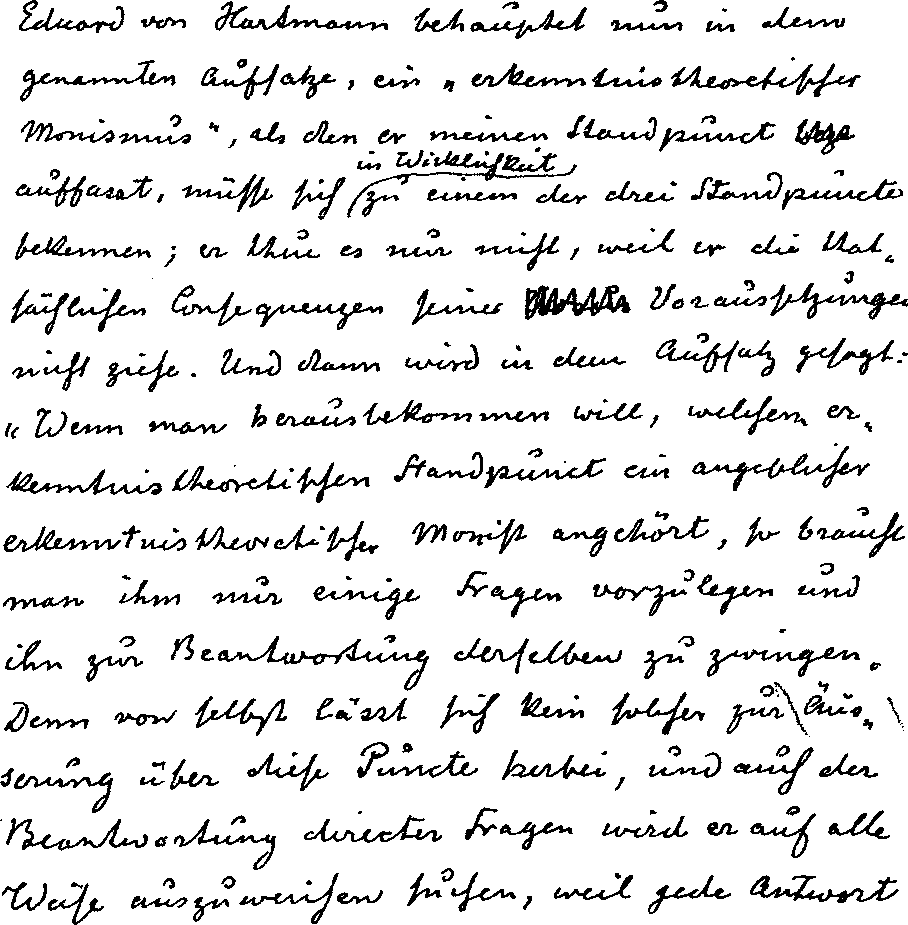 Eduard von Hartmann behauptet nun in dem
genannten Aufsatze, ein „erkenntnistheoretischer
Monismus“, als den er meinen Standpunct
in Wirklichkeit
auffasst, müsse sich zu einem der drei Standpuncte
bekennen; er thue es nur nicht, weil er die that-
sächlichen Consequenzen seiner Voraussetzungen
nicht ziehe. Und dann wird in dem Aufsatz gesagt:
„Wenn man herausbekommen will, welchem er-
kenntnistheoretischen Standpunct ein angeblicher
erkenntnistheoretischer Monist angehört, so braucht
man ihm nur einige Fragen vorzulegen und
ihn zur Beantwortung derselben zu zwingen.
Denn von selbst lässt sich kein solcher zur Äus-
serung über diese Puncte herbei, und auch der
Beantwortung directer Fragen wird er auf alle
Weise auszuweichen suchen, weil jede Antwort